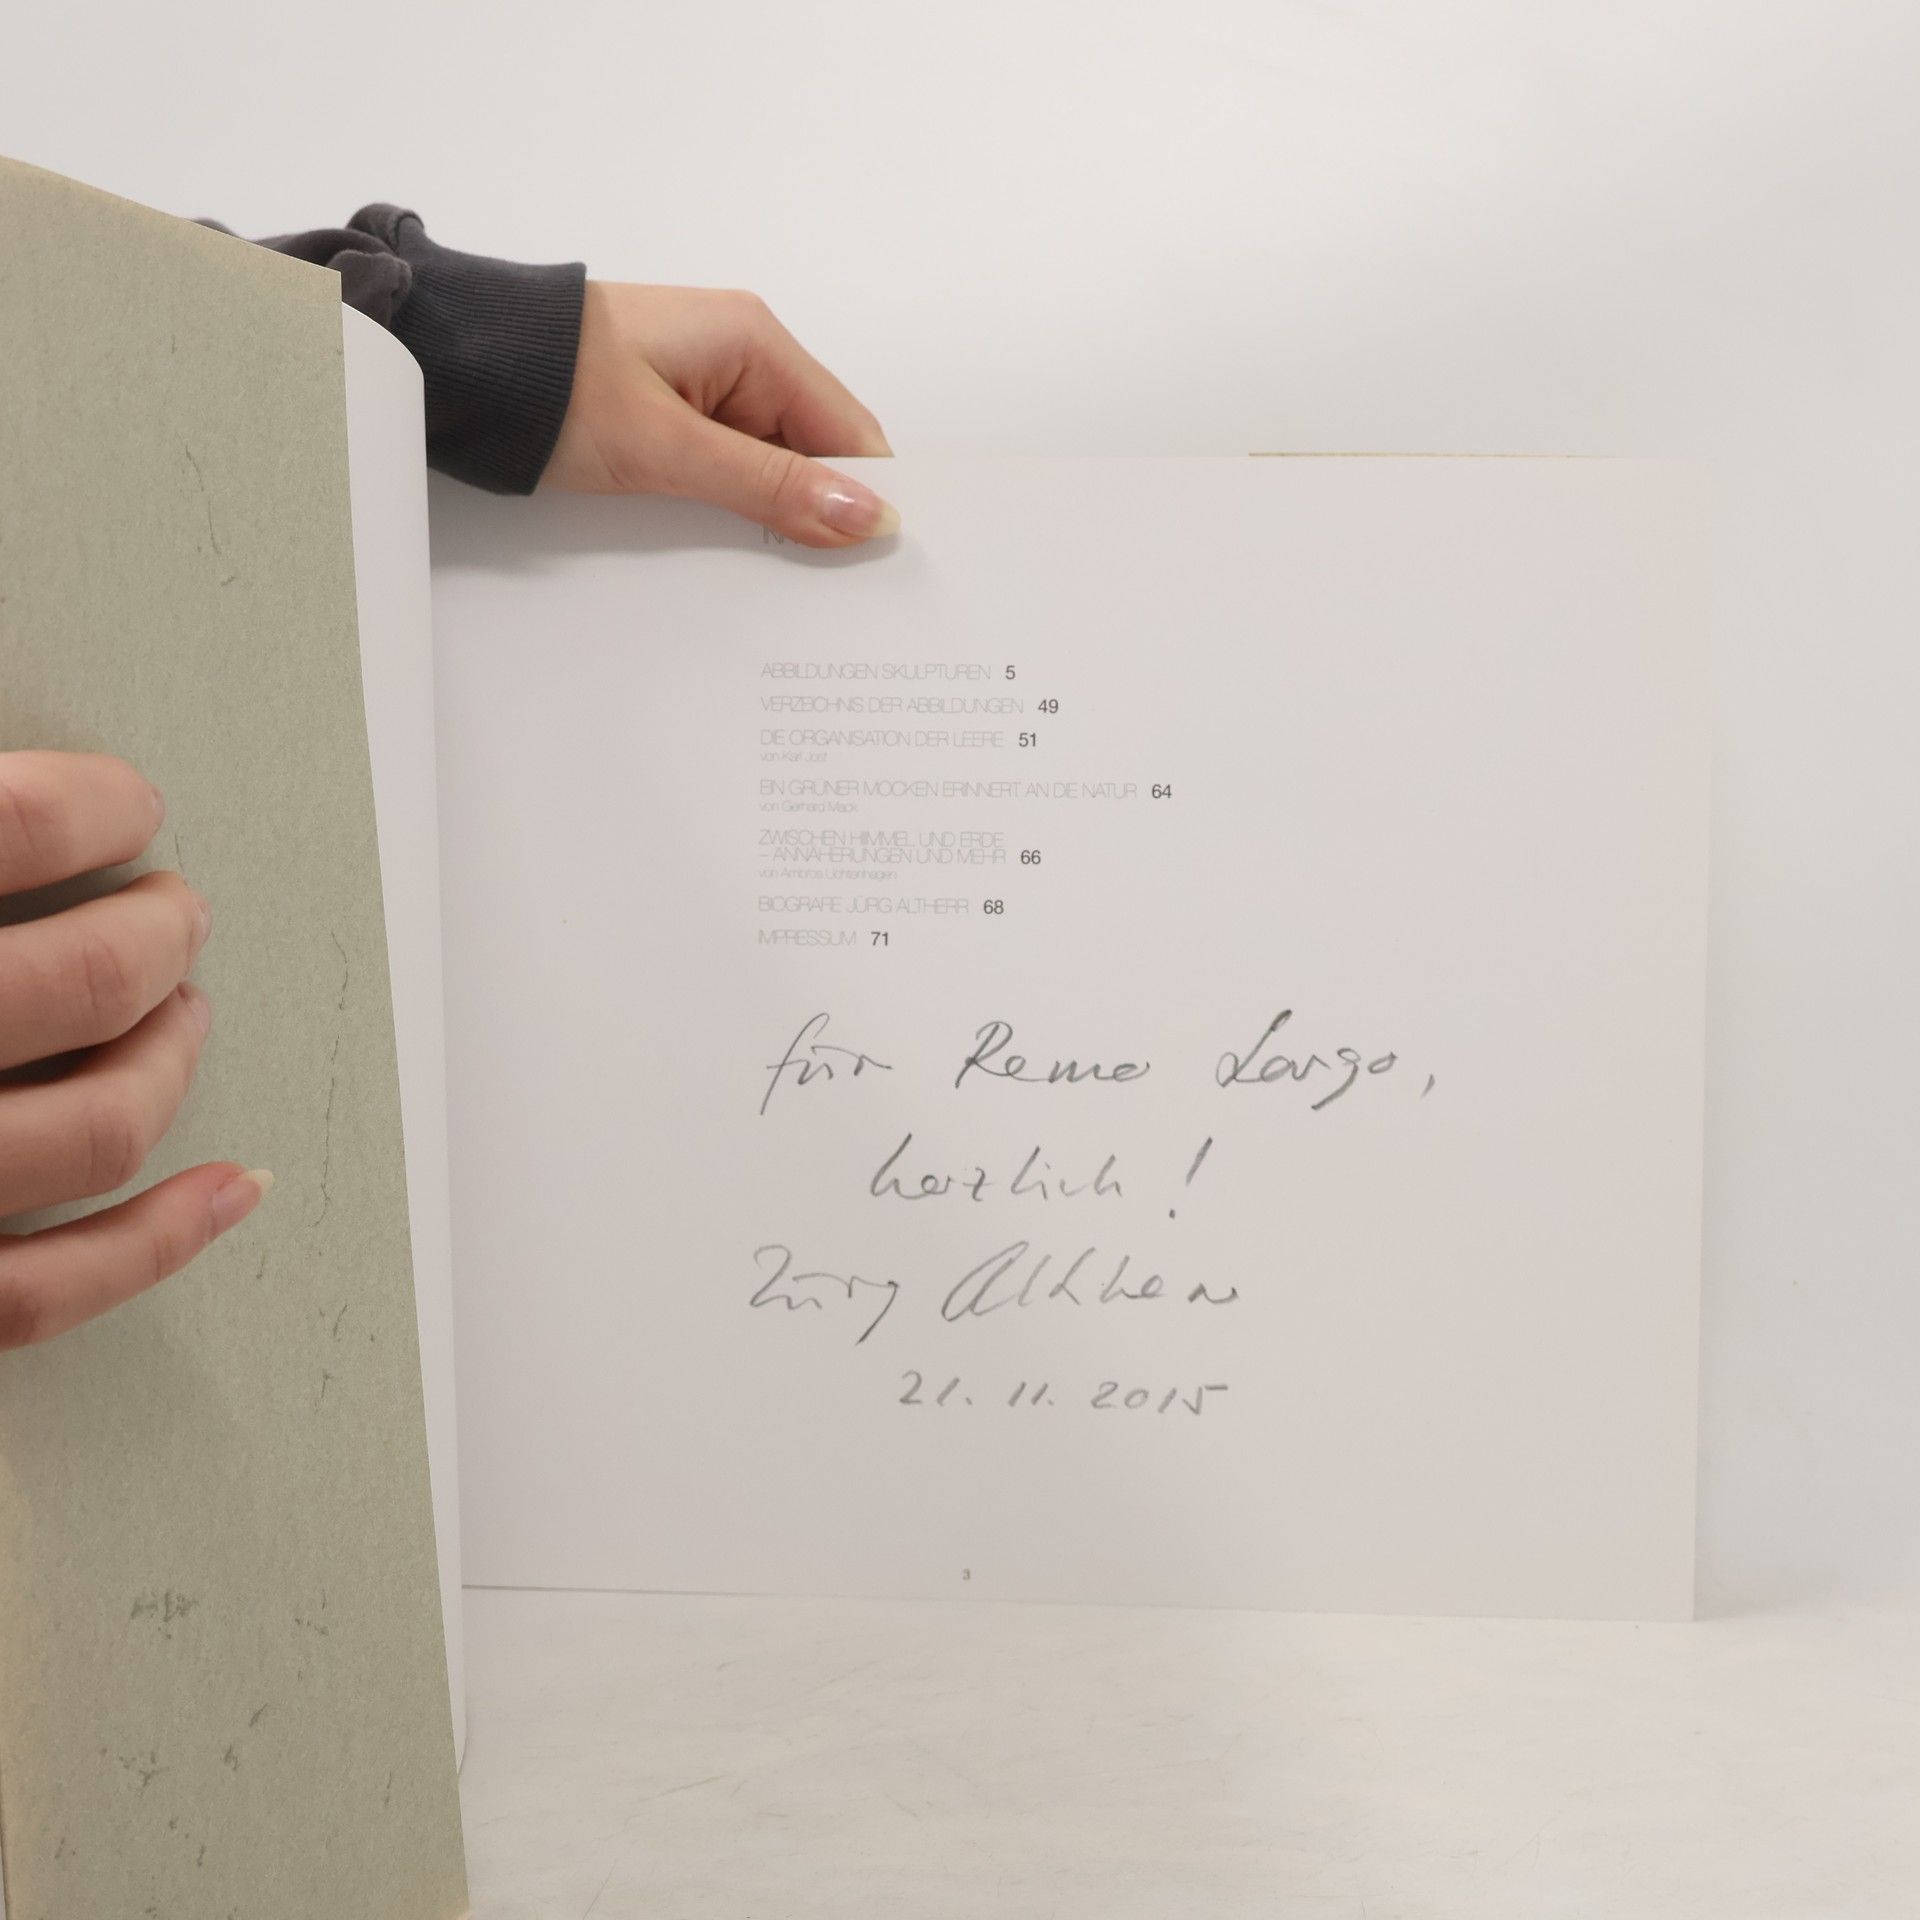 ABBILDUNGEN SKULPTUREN 5
VERZEICHNIS DER ABBILDUNGEN 49
DIE ORGANISATION DER LEERE 51
von Karl Jost
EIN GRÜNER MOCKEN ERINNERT AN DIE NATUR 64
von Gerhard Mack
ZWISCHEN HIMMEL UND ERDE
– ANNÄHERUNGEN UND MEHR 66
von Ambros Uchtenhagen
BIOGRAFIE JÜRG ALTHERR 68
IMPRESSUM 71
für Remo Largo,
herzlich!
Jürg Altherr
21. 11. 2015
3